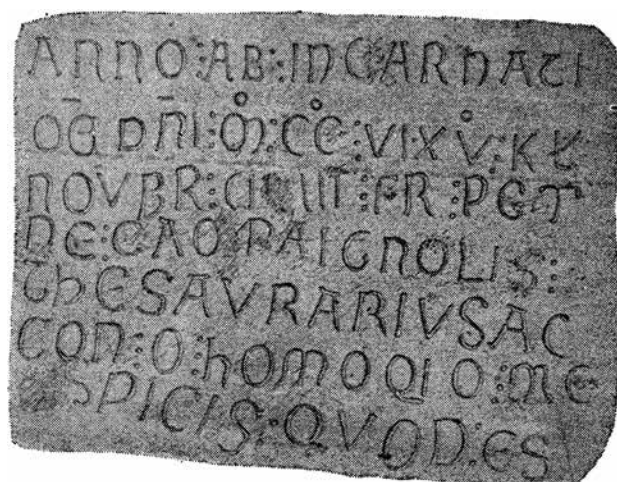 ANNO:AB:INCARNATI
ŌE DN̄I:M̊:CC̊:VI:XV̊:KL
NOVBR: :FR:PET
DE:CAOPAIGNOLIS:
ThESAVRARIVSAC
CON:O:hOMOQIO:ME
SPICIS:QVOD:ES